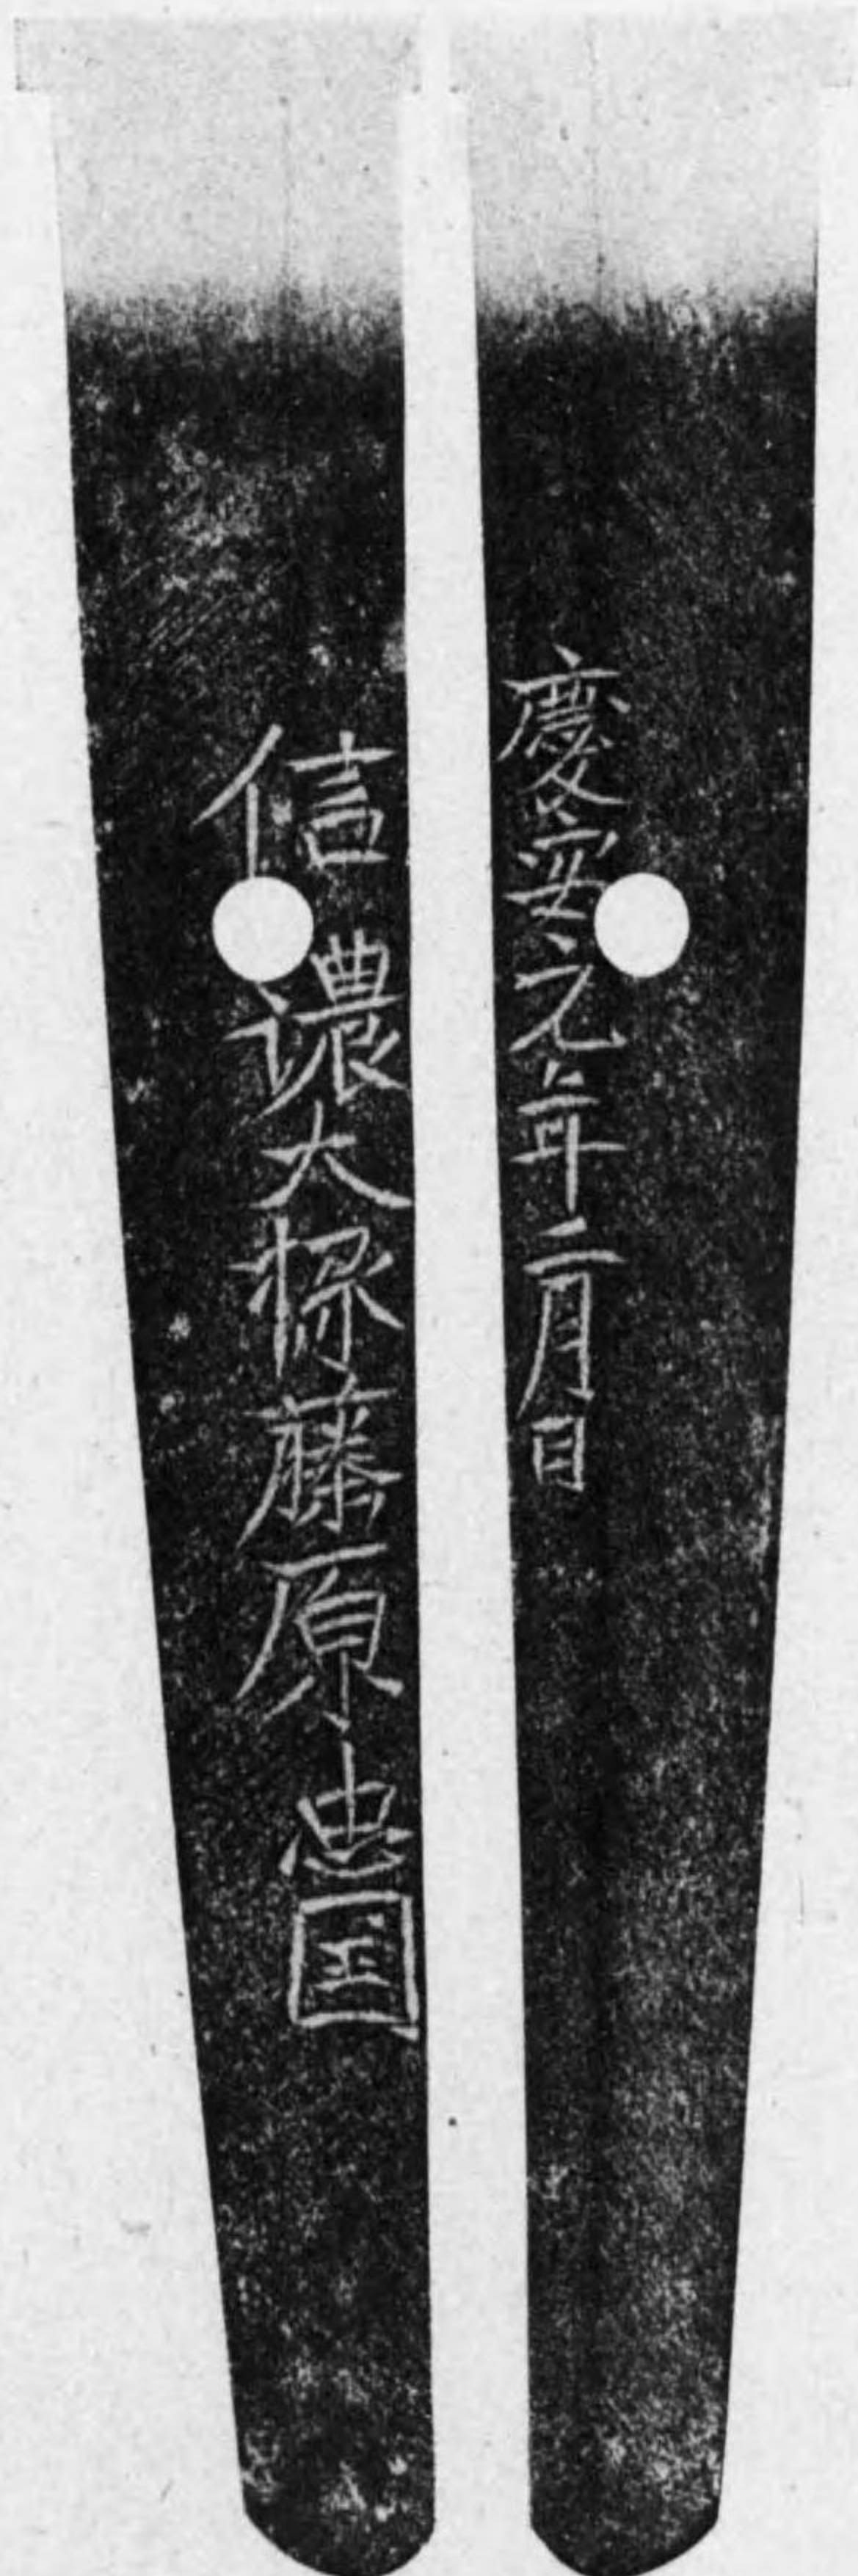 慶安元年二月日
信濃大掾藤原忠国